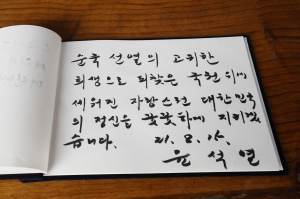 순국 선열의 고귀한
희생으로 되찾은 국권 위에
세워진 자랑스런 대한민국
의 정신을 꿋꿋하게 지키겠
습니다. 21. 8. 15.
윤 석 열